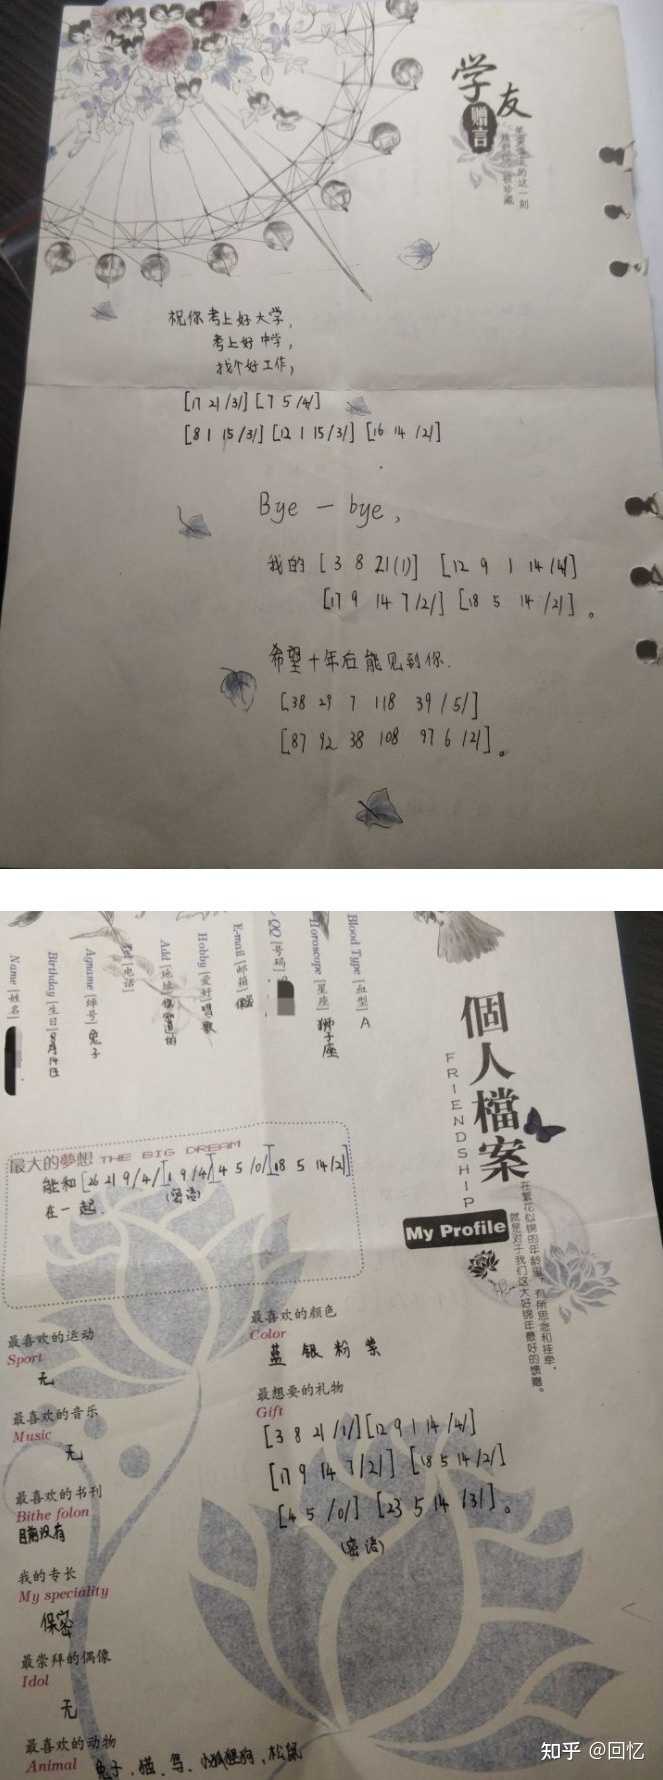 学友
赠言
祝你考上好大学，
考上好中学，
找个好工作，
[17 21 /3/] [7 5 /4/]
[8 1 15 /3/] [12 1 15 /3/] [16 14 /2/]
Bye — bye，
我的 [3 8 21 (1)] [12 9 1 14 /4/]
[17 9 14 7 /2/] [18 5 14 /2/]。
希望十年后能见到你.
[38 29 7 118 39 /5/]
[87 92 38 108 97 6 /2/]。
Blood Type [血型] A
Horoscope [星座] 狮子座
QQ [号码]
E-mail [邮箱] 保密
Hobby [爱好] 唱歌
Add [地址]
Tel [电话]
Agname [绰号] 兔子
Birthday [生日] 8月14日
Name [姓名]
個人檔案
FRIENDSHIP
My Profile
在繁花似锦的年龄里，有所思念和挂牵，
就是对于我们这大好锦年最好的馈赠。
最大的夢想 THE BIG DREAM
能和 [26 21 9 /4/] [1 9 /4/] [4 5 /0/] [18 5 14 /2/]
(密语)
在一起.
最喜欢的颜色
Color
蓝 银 粉 紫
最喜欢的运动
Sport
无
最想要的礼物
Gift
[3 8 21 /1/] [12 9 1 14 /4/]
[17 9 14 7 /2/] [18 5 14 /2/]
[4 5 /0/] [23 5 14 /3/]。
(密语)
最喜欢的音乐
Music
无
最喜欢的书刊
Bithe folon
目前没有
我的专长
My speciality
保密
最崇拜的偶像
Idol
无
最喜欢的动物
Animal
兔子、猫、鸟、小狐狸狗、松鼠
知乎 @回忆